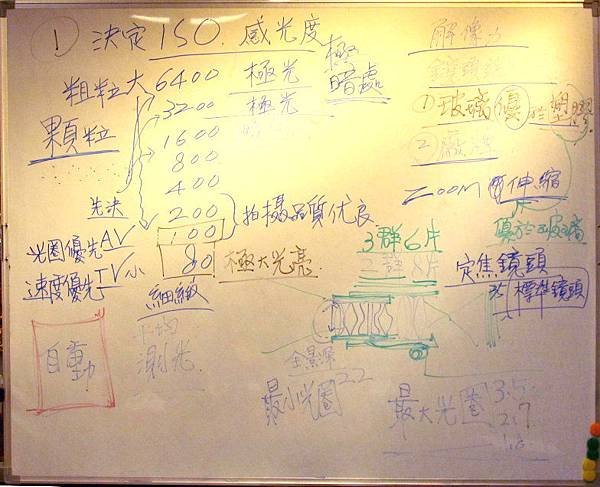 ① 決定 ISO. 感光度
粗粒大 6400 極光 極
3200 極光 暗處
顆粒
1600
800
400
先決 200 拍攝品質优良
光圈優先 AV 100
速度優先 TV 小 80 極大光亮
細緻
自動
平均
測光
解像力
鏡頭
① 玻璃優於塑膠
②
ZOOM 伸縮
優於
3群6片
二群8片
定焦鏡頭
標準鏡頭
全景深
最小光圈 22
最大光圈 3.5
2.7